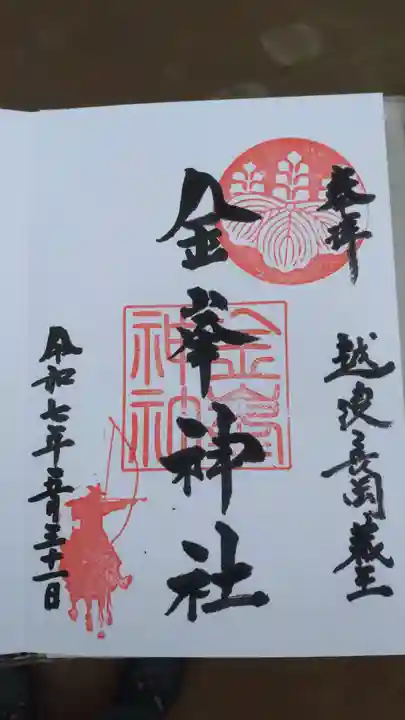 奉拝
越後長岡蔵王
金峯神社
金峯神社
令和七年壱月三十一日